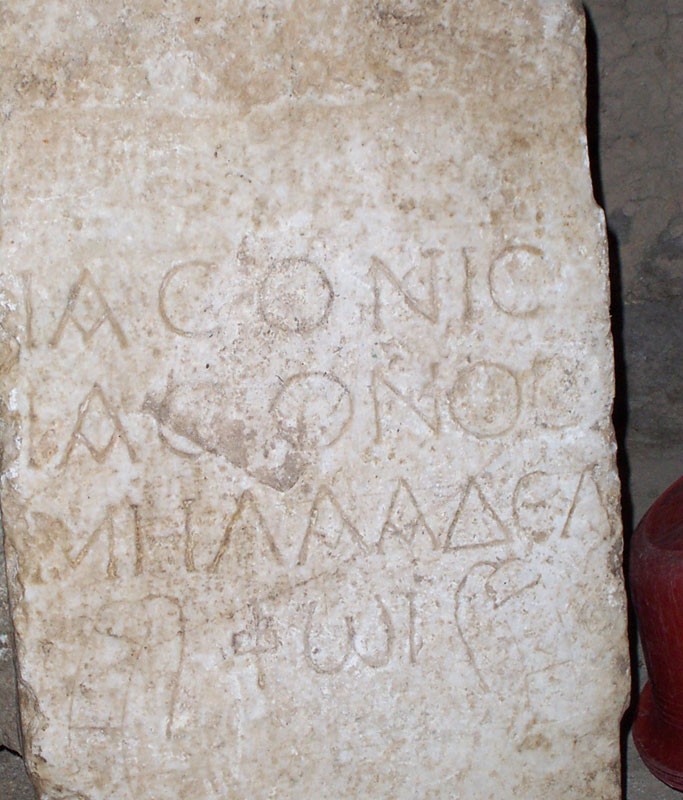 ΙΑϹΟΝΙϹ
ΙΑϹΟΝΟϹ
ΜΗΛΑΑΔΕΛ
ΦωΙ